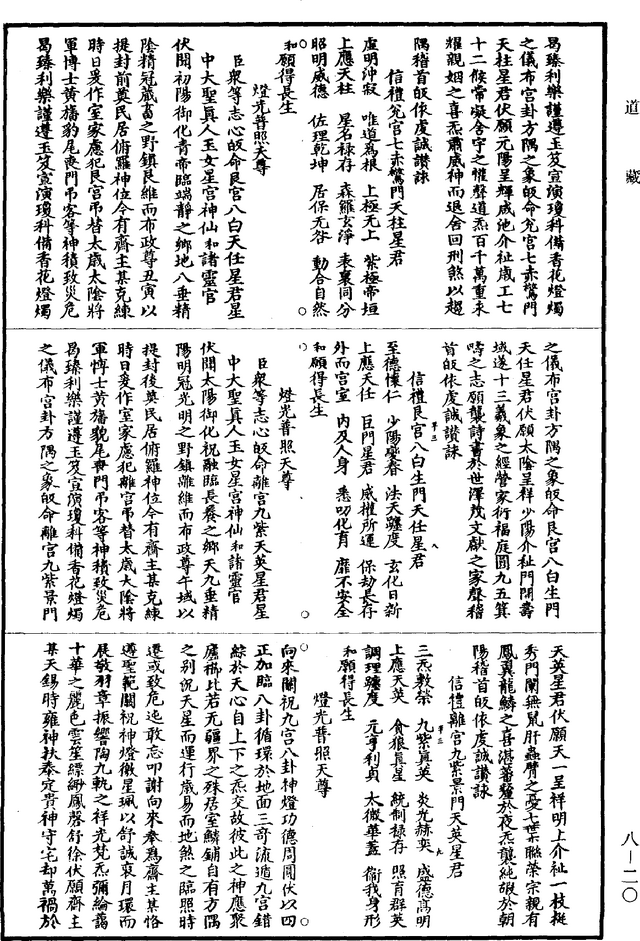 道藏
曷臻利樂謹遵玉笈宣演瓊科備香花燈燭
之儀布宮卦方隅之象皈命兌宮七赤驚門
天柱星君伏願元陽呈輝咸池介祉歲工七
十二候常凝含宇之惟馨道炁百千萬重永
耀親姻之喜炁肅威神而退舍回刑煞以趨
隅稽首皈依虔誠讚詠
信禮兌宮七赤驚門天柱星君
虛明沖寂　唯道為根　上極无上　紫極帝垣
上應天柱　星名祿存　森羅玄淨　表裏同分
昭明威德　佐理乾坤　居保无咎　動合自然
和願得長生
燈光普照天尊
臣眾等志心皈命艮宮八白天任星君星
中大聖真人玉女星宮神仙和諸靈官
伏聞初陽御化青帝臨端靜之鄉地八垂精
陰精冠蓄之野鎮艮維而布政尊丑寅以
提封前奠民居俯羅神位今有齋主某克練
時日爰作室家慮犯艮宮弔替太歲太陰將
軍博士黃旛豹尾喪門弔客等神積致災危
曷臻利樂謹遵玉笈宣演瓊科備香花燈燭
之儀布宮卦方隅之象皈命艮宮八白生門
天任星君伏願太陰呈祥少陽介祉門閭壽
域遂十三義象之經營家衍福庭圓九五箕
疇之志願襲詩書於世澤茂文獻之家聲稽
首皈依虔誠讚詠
信禮艮宮八白生門天任星君
至德懷仁　少陽變春　法天躔度　玄化日新
上應天任　巨門星君　威權所運　保劫長存
外而宮室　內及人身　悉叨化育　靡不安全
和願得長生
燈光普照天尊
臣眾等志心皈命離宮九紫天英星君星
中大聖真人玉女星宮神仙和諸靈官
伏聞太陽御化祝融臨長養之鄉天九垂精
陽明冠光明之野鎮離維而布政尊午域以
提封後奠民居俯羅神位今有齋主某克練
時日爰作室家慮犯離宮弔替太歲大陰將
軍愽士黃旛豹尾喪門弔客等神積致災危
曷臻利樂謹遵玉笈宣演瓊科備香花燈燭
之儀布宮卦方隅之象皈命離宮九紫景門
天英星君伏願天一呈祥明上介祉一枝挺
秀門闌無鼠肝蟲臂之憂七葉聯榮宗親有
鳳翼龍鱗之喜湛蕃釐於夜炁襲純嘏於朝
陽稽首皈依虔誠讚詠
信禮離宮九紫景門天英星君
三炁敷榮　九紫真英　炎光赫奕　盛德高明
上應天英　貪狼真星　統制祿存　照育群英
調理躔度　元亨利貞　太微華蓋　衞我身形
和願得長生
燈光普照天尊
向來關祝九宮八卦神燈功德周圓伏以四
正加臨八卦循環於地面三奇流遁九宮錯
綜於天心自上下之炁交故彼此之神應聚
廬稱比若无疆界之殊居室鱗鋪自有方隅
之別況天星而運行歲易而地煞之臨照時
遷或致危迍敢忘叩謝向來奉為齋主某恪
遵聖範關祝神燈徽星珮以舒誠衷月環而
展敬羽章振響陶九軌之祥光梵炁彌綸藹
十華之麗色雲笙縹緲鳳磬舒徐伏願齋主
某天錫時雍神扶泰定貴神守宅却萬禍於
八—二〇